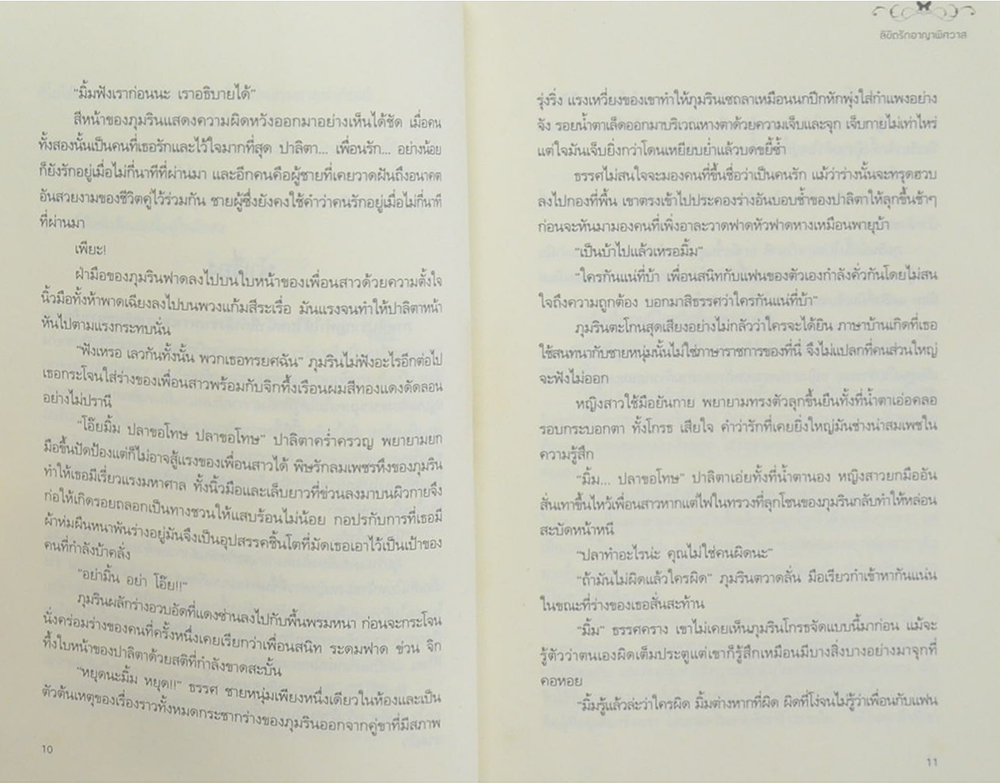 "มิ้มฟังเราก่อนนะ เราอธิบายได้"
สีหน้าของภุมรินแสดงความผิดหวังออกมาอย่างเห็นได้ชัด เมื่อคน
ทั้งสองนั้นเป็นคนที่เธอรักและไว้ใจมากที่สุด ปาลิตา... เพื่อนรัก... อย่างน้อย
ก็ยังรักอยู่เมื่อไม่กี่นาทีที่ผ่านมา และอีกคนคือผู้ชายที่เคยวาดฝันถึงอนาคต
อันสวยงามของชีวิตคู่ไว้ร่วมกัน ชายผู้ซึ่งยังคงใช้คำว่าคนรักอยู่เมื่อไม่กี่นาที
ที่ผ่านมา
เพียะ!
ฝ่ามือของภุมรินฟาดลงไปบนใบหน้าของเพื่อนสาวด้วยความตั้งใจ
นิ้วมือทั้งห้าพาดเฉียงลงไปบนพวงแก้มสีระเรื่อ มันแรงจนทำให้ปาลิตาหน้า
หันไปตามแรงกระทบนั่น
"ฟังเหรอ เลวกันทั้งนั้น พวกเธอทรยศฉัน" ภุมรินไม่ฟังอะไรอีกต่อไป
เธอกระโจนใส่ร่างของเพื่อนสาวพร้อมกับจิกทึ้งเรือนผมสีทองแดงดัดลอน
อย่างไม่ปรานี
"โอ๊ยมิ้ม ปลาขอโทษ ปลาขอโทษ" ปาลิตาคร่ำครวญ พยายามยก
มือขึ้นปัดป้องแต่ก็ไม่อาจสู้แรงของเพื่อนสาวได้ พิษรักลมเพชรหึงของภุมริน
ทำให้เธอมีเรี่ยวแรงมหาศาล ทั้งนิ้วมือและเล็บยาวที่ข่วนลงมาบนผิวกายจึง
ก่อให้เกิดรอยถลอกเป็นทางชวนให้แสบร้อนไม่น้อย กอปรกับการที่เธอมี
ผ้าห่มผืนหนาพันร่างอยู่มันจึงเป็นอุปสรรคชิ้นโตที่มัดเธอเอาไว้เป็นเป้าของ
คนที่กำลังบ้าคลั่ง
"อย่ามิ้น อย่า โอ๊ย!!"
ภุมรินผลักร่างอวบอัดที่แดงซ่านลงไปกับพื้นพรมหนา ก่อนจะกระโจน
นั่งคร่อมร่างของคนที่ครั้งหนึ่งเคยเรียกว่าเพื่อนสนิท ระดมฟาด ข่วน จิก
ทึ้งใบหน้าของปาลิตาด้วยสติที่กำลังขาดสะบั้น
"หยุดนะมิ้ม หยุด!!" ธรรศ ชายหนุ่มเพียงหนึ่งเดียวในห้องและเป็น
ตัวต้นเหตุของเรื่องราวทั้งหมดกระชากร่างของภุมรินออกจากคู่ขาที่มีสภาพ
10
ลิขิตรักอาญาพิศวาส
รุ่งริ่ง แรงเหวี่ยงของเขาทำให้ภุมรินเซถลาเหมือนนกปีกหักพุ่งใส่กำแพงอย่าง
จัง รอยน้ำตาเล็ดออกมาบริเวณหางตาด้วยความเจ็บและจุก เจ็บกายไม่เท่าไหร่
แต่ใจมันเจ็บยิ่งกว่าโดนเหยียบย่ำแล้วบดขยี้ซ้ำ
ธรรศไม่สนใจจะมองคนที่ขึ้นชื่อว่าเป็นคนรัก แม้ว่าร่างนั้นจะทรุดฮวบ
ลงไปกองที่พื้น เขาตรงเข้าไปประคองร่างอันบอบช้ำของปาลิตาให้ลุกขึ้นช้าๆ
ก่อนจะหันมามองคนที่เพิ่งอาละวาดฟาดหัวฟาดหางเหมือนพายุบ้า
"เป็นบ้าไปแล้วเหรอมิ้ม"
"ใครกันแน่ที่บ้า เพื่อนสนิทกับแฟนของตัวเองกำลังคั่วกันโดยไม่สน
ใจถึงความถูกต้อง บอกมาสิธรรศว่าใครกันแน่ที่บ้า"
ภุมรินตะโกนสุดเสียงอย่างไม่กลัวว่าใครจะได้ยิน ภาษาบ้านเกิดที่เธอ
ใช้สนทนากับชายหนุ่มนั้นไม่ใช่ภาษาราชการของที่นี่ จึงไม่แปลกที่คนส่วนใหญ่
จะฟังไม่ออก
หญิงสาวใช้มือยันกาย พยายามทรงตัวลุกขึ้นยืนทั้งที่น้ำตาเอ่อคลอ
รอบกระบอกตา ทั้งโกรธ เสียใจ คำว่ารักที่เคยยิ่งใหญ่มันช่างน่าสมเพชใน
ความรู้สึก
"มิ้ม... ปลาขอโทษ" ปาลิตาเอ่ยทั้งที่น้ำตานอง หญิงสาวยกมืออัน
สั่นเทาขึ้นไหว้เพื่อนสาวหากแต่ไฟในทรวงที่ลุกโชนของภุมรินกลับทำให้หล่อน
สะบัดหน้าหนี
"ปลาทำอะไรน่ะ คุณไม่ใช่คนผิดนะ"
"ถ้ามันไม่ผิดแล้วใครผิด" ภุมรินตวาดลั่น มือเรียวกำเข้าหากันแน่น
ในขณะที่ร่างของเธอสั่นสะท้าน
"มิ้ม" ธรรศคราง เขาไม่เคยเห็นภุมรินโกรธจัดแบบนี้มาก่อน แม้จะ
รู้ตัวว่าตนเองผิดเต็มประตูแต่เขาก็รู้สึกเหมือนมีบางสิ่งบางอย่างมาจุกที่
คอหอย
"มิ้มรู้แล้วล่ะว่าใครผิด มิ้มต่างหากที่ผิด ผิดที่โง่จนไม่รู้ว่าเพื่อนกับแฟน
11